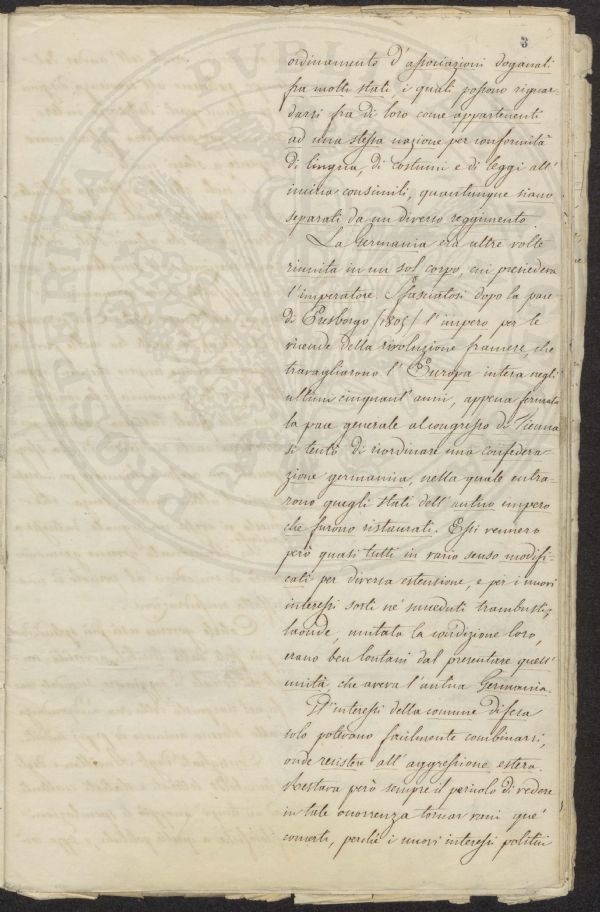 3
ordinamento d'associazioni doganali
fra molti stati, i quali possono riguar-
darsi fra di loro come appartenenti
ad una stessa nazione per conformità
di lingua, di costumi e di leggi all'
incirca consimili, quantunque siano
separati da un diverso reggimento
La Germania era altre volte
riunita in un sol corpo, cui presiedeva
l'imperatore. Sfasciatosi dopo la pace
di Presborgo (1805) l'impero per le
vicende della rivoluzione francese, che
travagliarono l'Europa intera negli
ultimi cinquant'anni, appena fermata
la pace generale al congresso di Vienna
si tentò di riordinare una confedera-
zione germanica, nella quale entra-
rono quegli stati dell'antico impero
che furono ristaurati. Essi vennero
però quasi tutti in vario senso modifi-
cati per diversa estensione, e per i nuovi
interessi sorti ne' succeduti trambusti,
laonde, mutata la condizione loro,
erano ben lontani dal presentare quell'
unità, che aveva l'antica Germania.
Gl'interessi della comune difesa
solo potevano facilmente combinarsi,
onde resistere all'aggressione estera.
Restava però sempre il pericolo di vedere
in tale occorrenza tornar vani que'
concerti, perchè i nuovi interessi politici